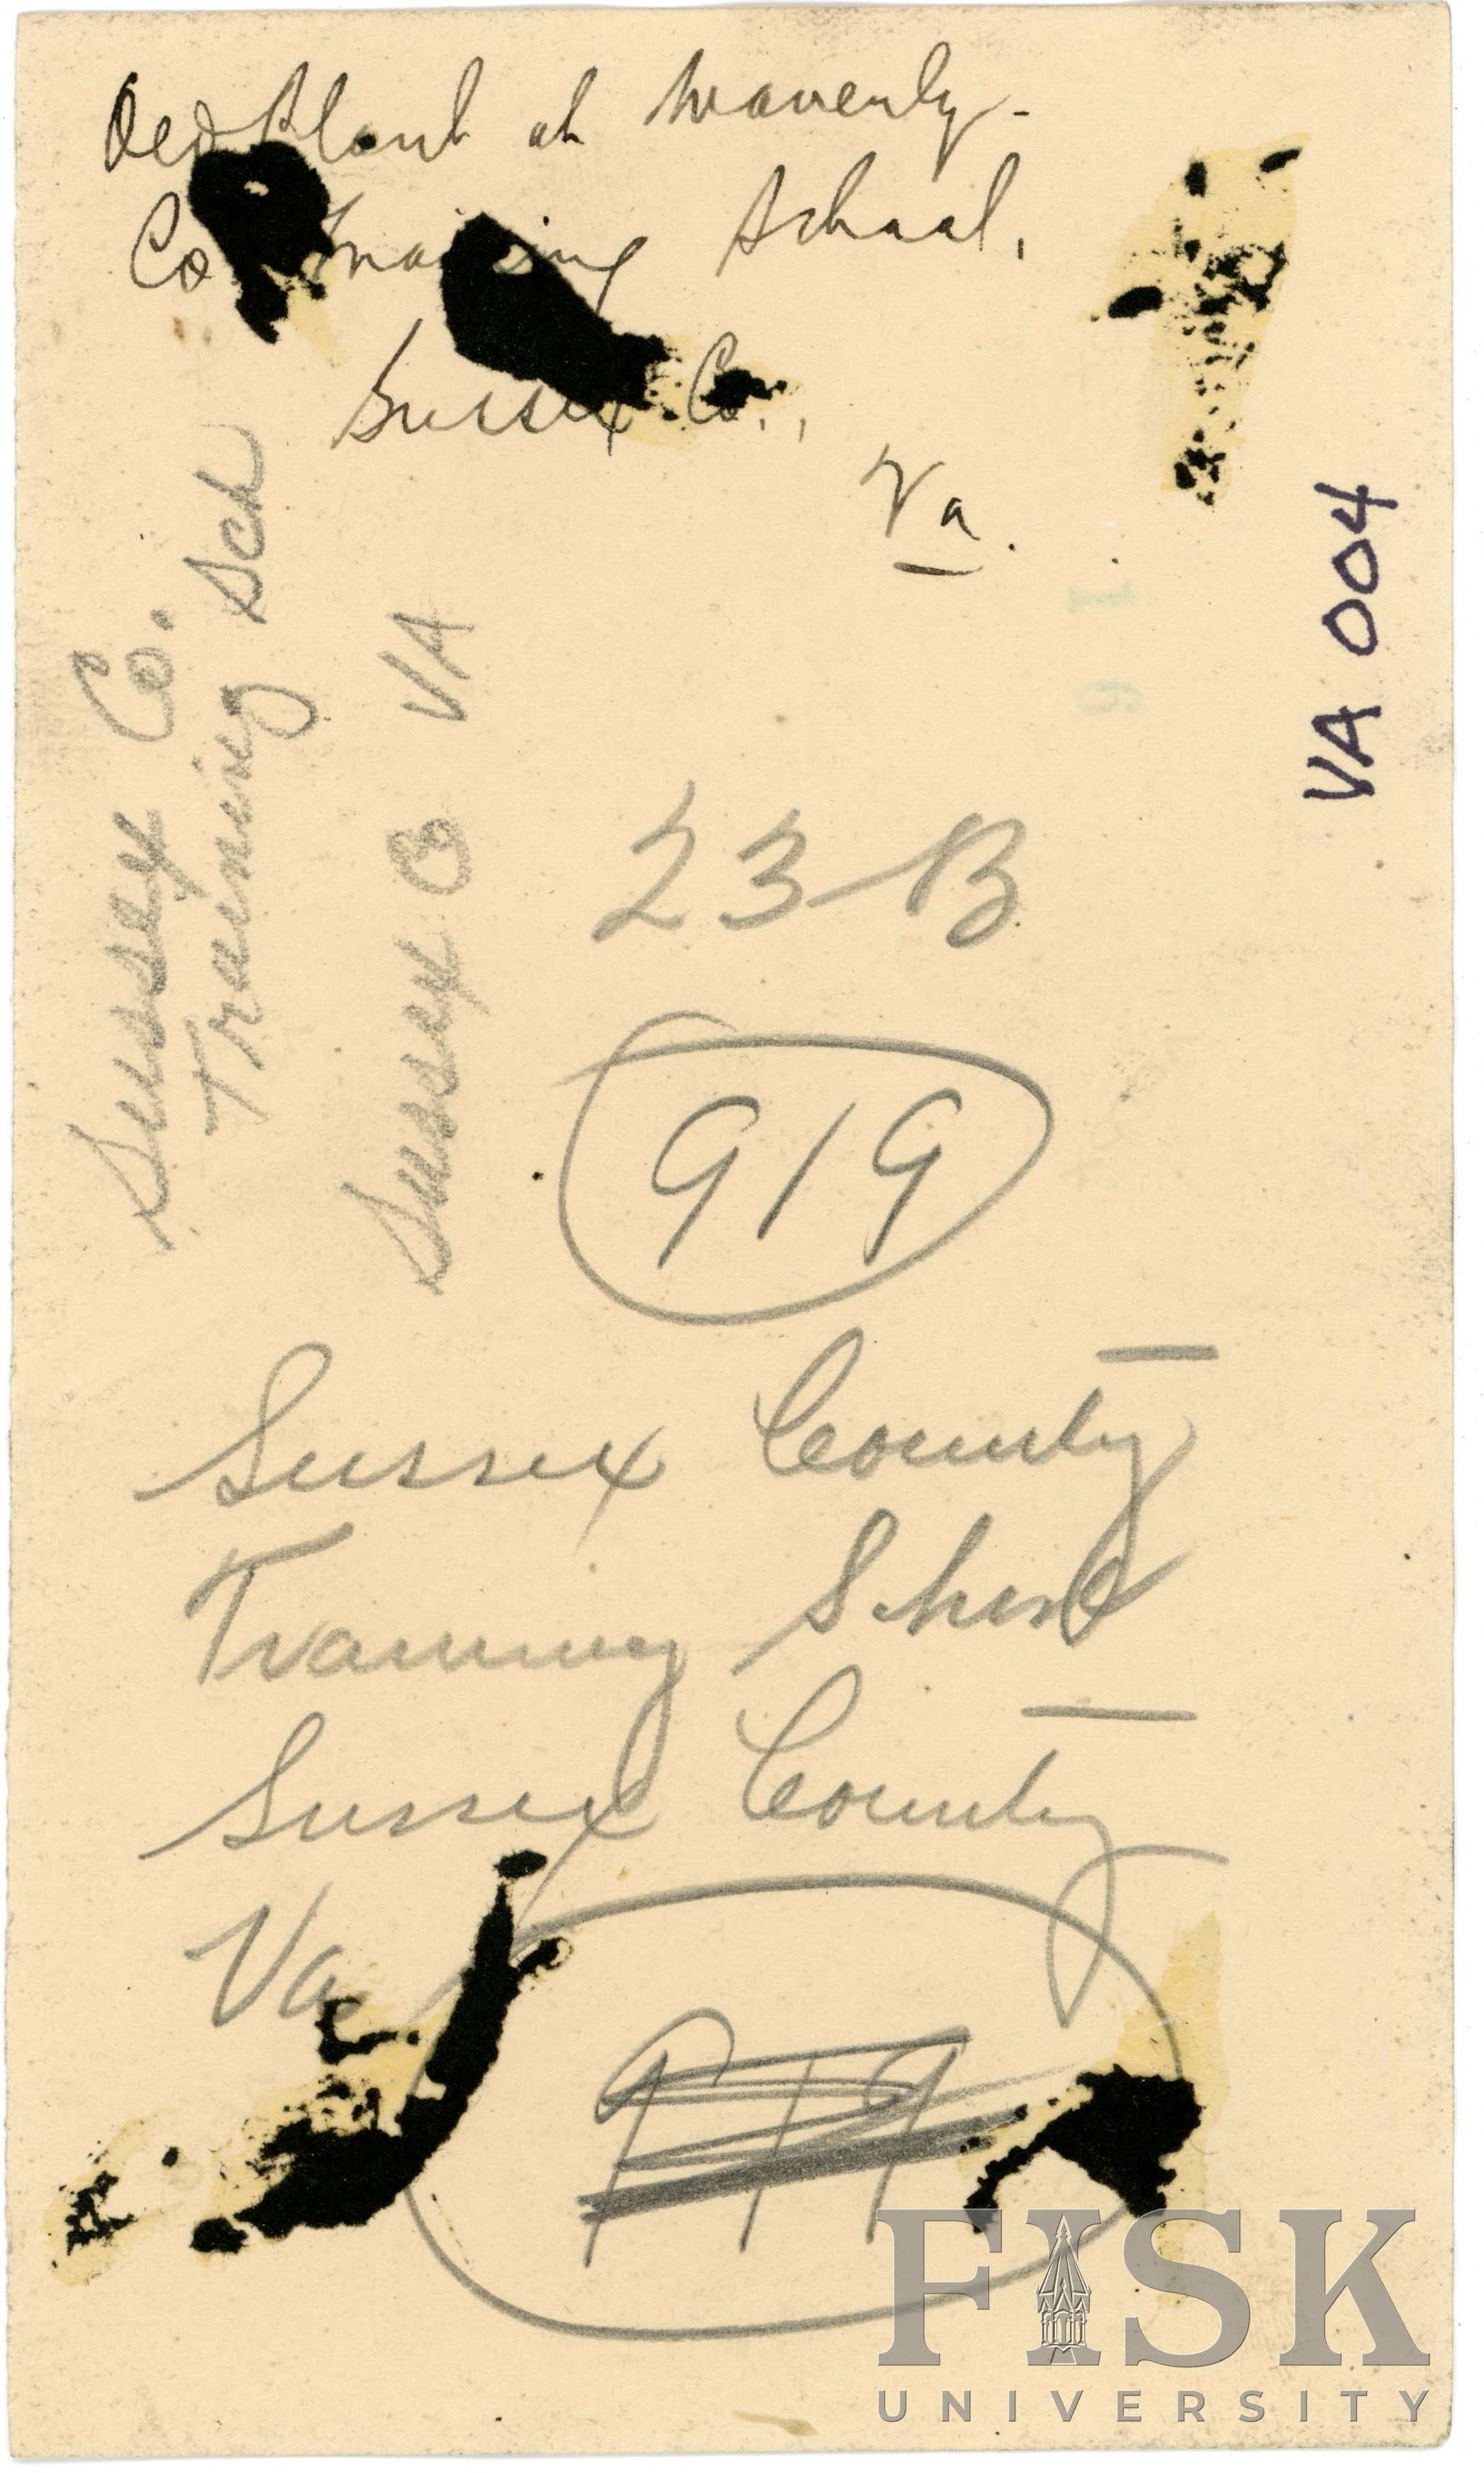 Old Plant at Waverly-
Co Training School,
Sussex Co.,
Va.
Sussex Co.
Training Sch
Sussex Co VA
VA 004
16
23-B
919
Sussex County
Training School
Sussex County
Va.
919
FISK
UNIVERSITY